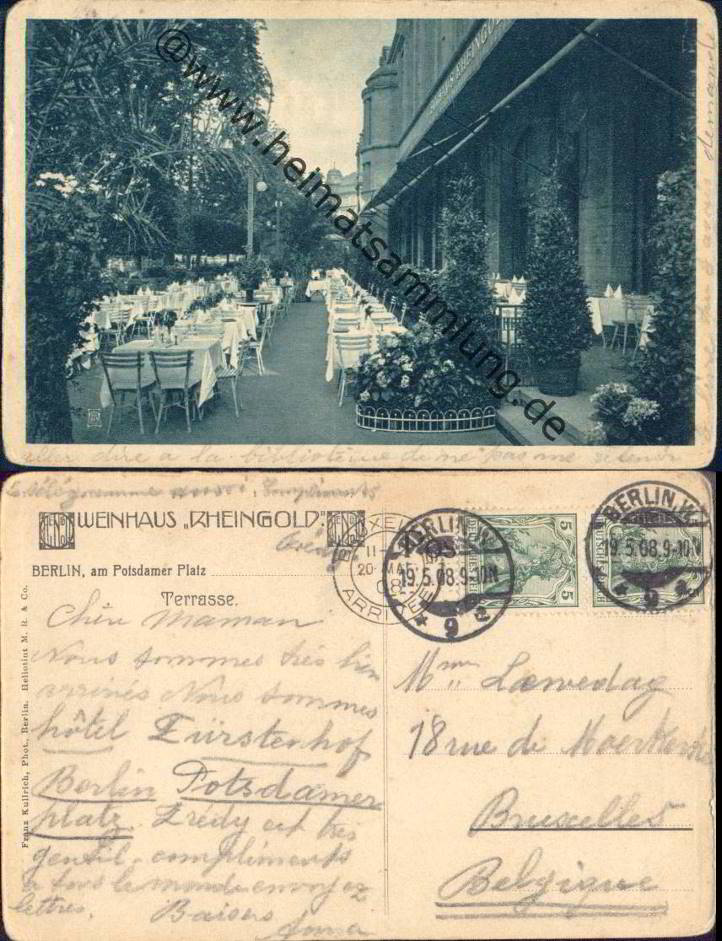 @www.heimatsammlung.de
RHEINGOLD
aller dire a la bibliotèque de ne pas me
WEINHAUS „RHEINGOLD“
BERLIN, am Potsdamer Platz
Terrasse.
Franz Kullrich, Phot., Berlin. Heliotint M. R. & Co.
Chère Maman
Nous sommes très bien
arrivés Nous sommes
hôtel Fürstenhof
Berlin Potsdamer
platz. Frédy est très
gentil. compliments
a tous le monde envoyez
lettres. Baisers
Anna
BERLIN.W.
19.5.08.9-10N
* 9 a
BERLIN.W.
19.5.08.9-10N
* 9 a
20 MAI
ARRIVEE
5
5
Mme Lœwedag
18 rue de
Bruxelles
Belgique